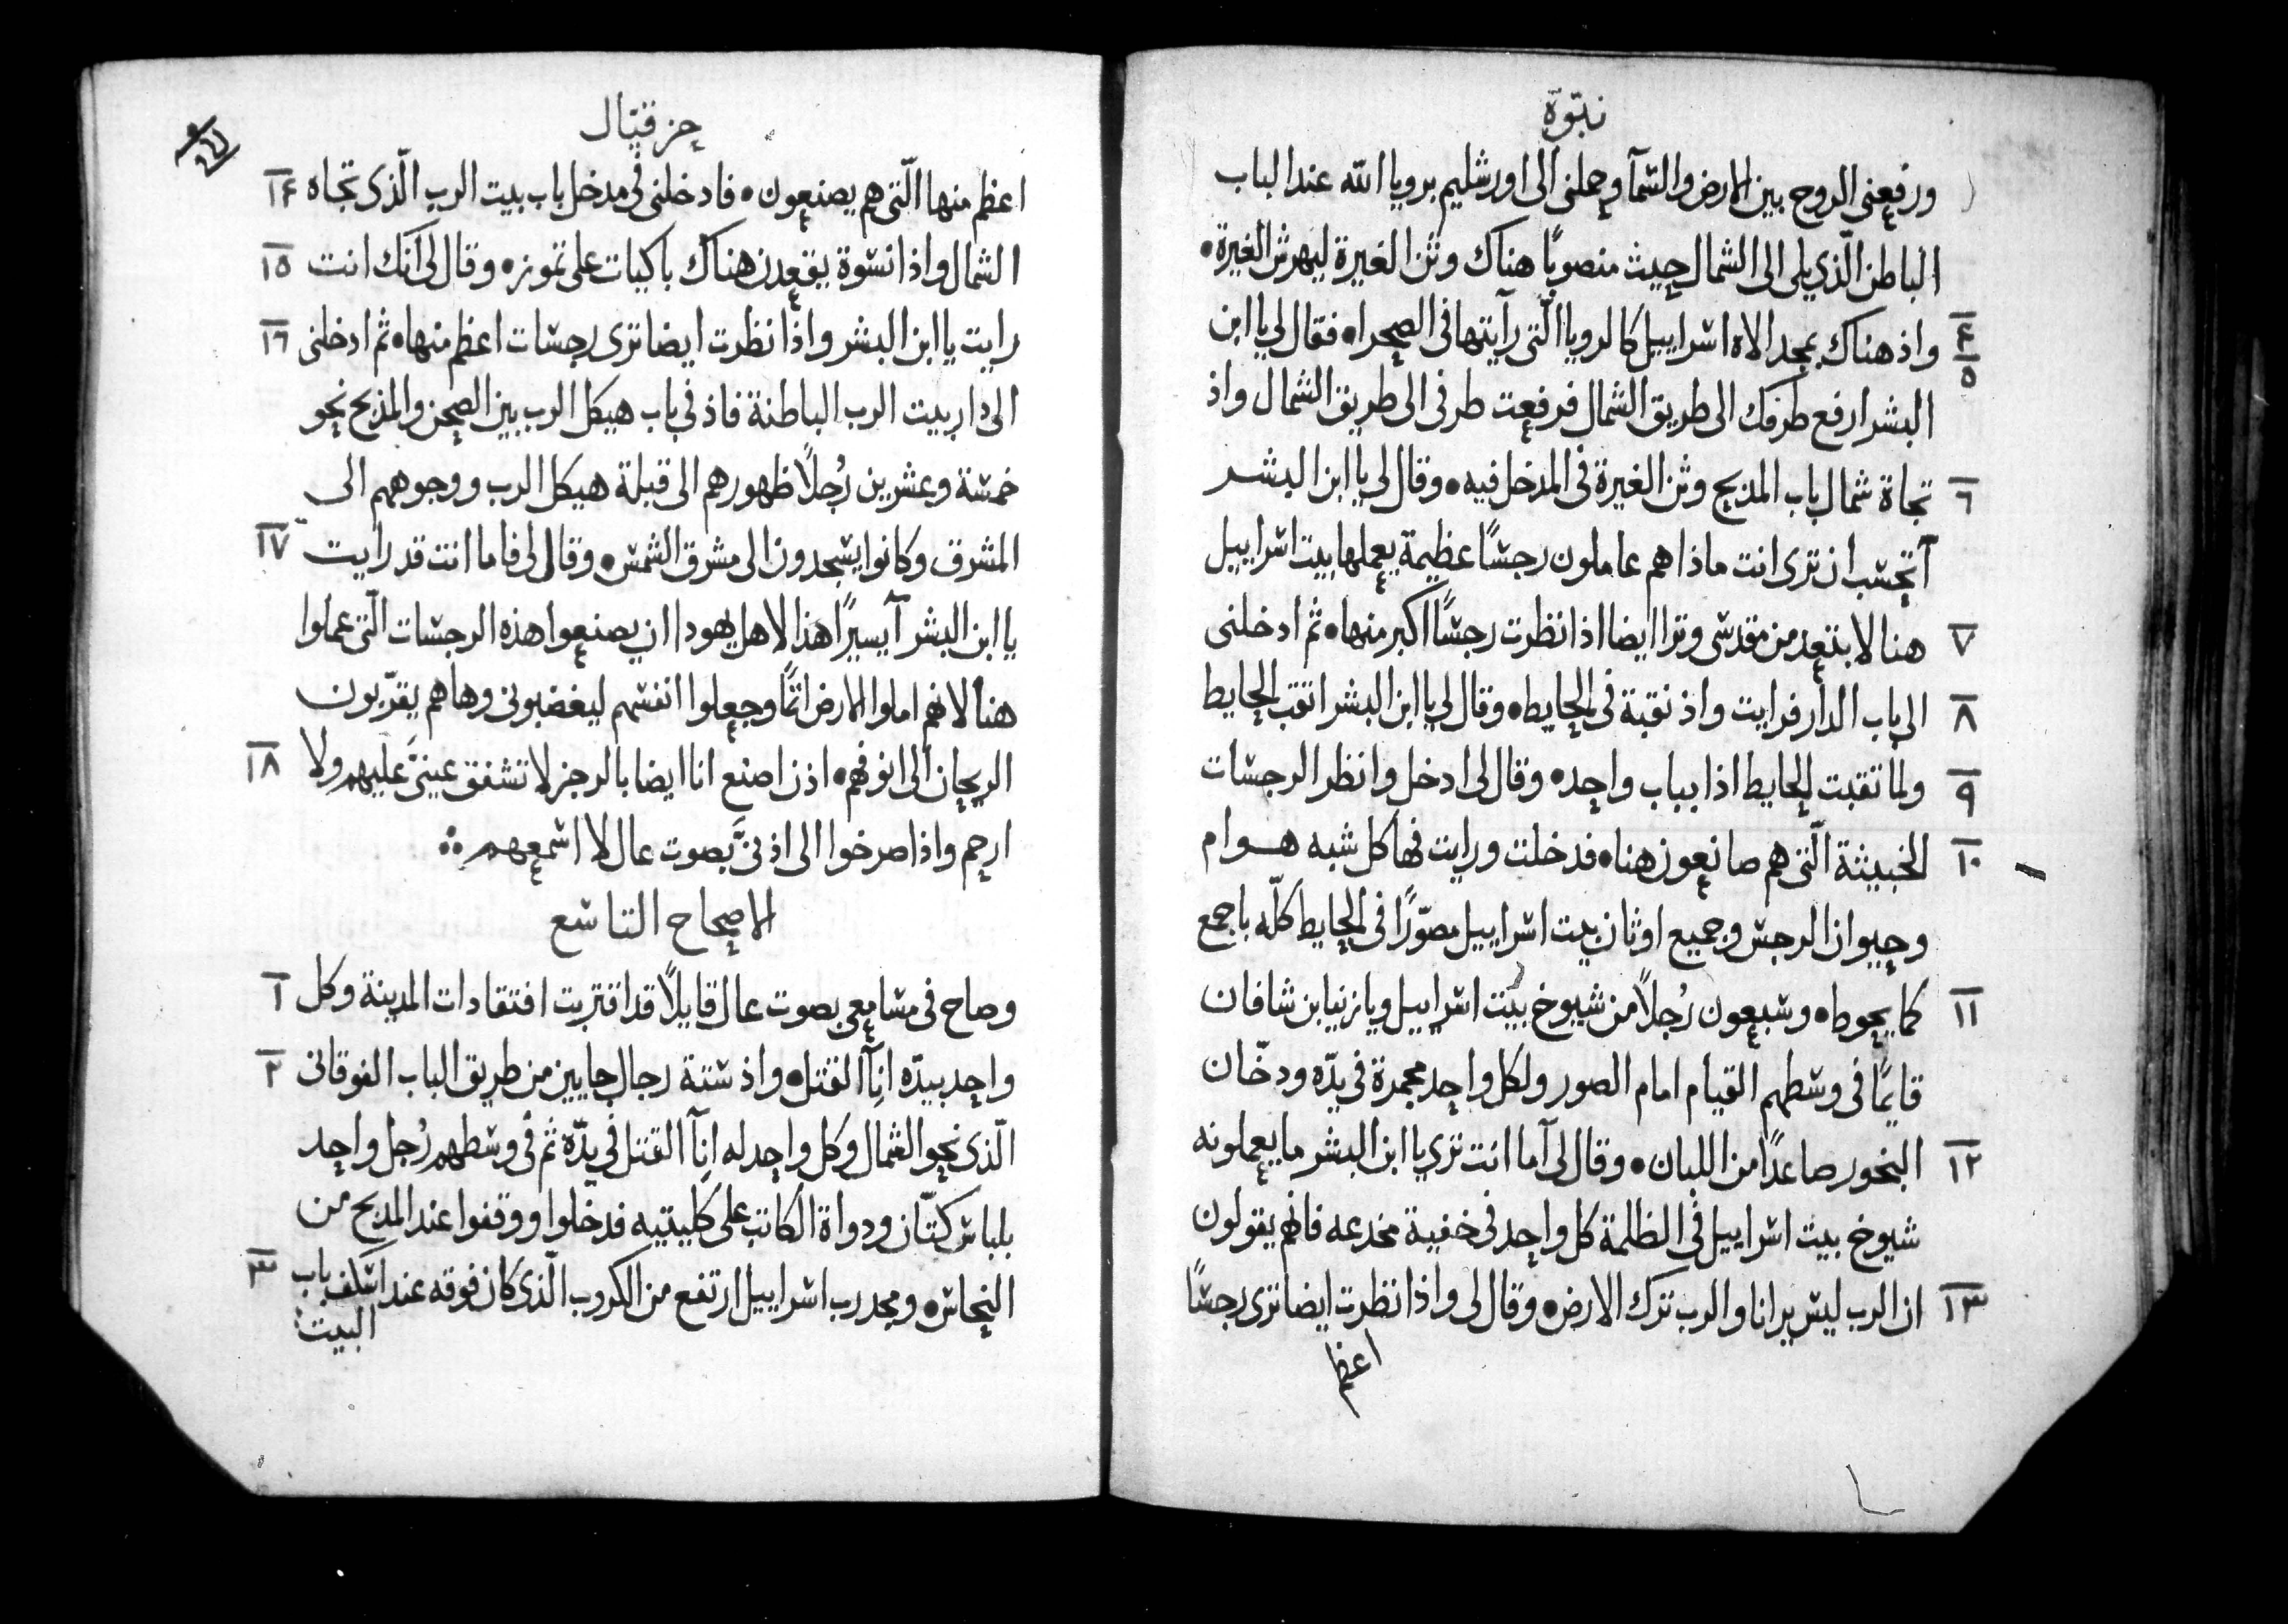 نبّوة
ورفعنى الروح بين الارض والسمآ وحملنى الى اورشليم برويا الله عند الباب
الباطن الّذي يلى الى الشمال حيث منصوبًا هناك وثن الغيرة ليهرش الغيرة
۴ ٥ واذ هناك بمجد الاه اسراييل كالرويا الّتى رآيتها فى الصحراء فقال لي يا ابن
البشر ارفع طرفك الى طريق الشمال فرفعت طرفى الى طريق الشمال واذ
٦ تجاة شمال باب المذبح وثن الغيرة فى المدخل فيه وقال لي يا ابن البشر
آتحسب ان ترى انت ماذا هم عاملون رجسًا عظيمة يعملها بيت اسراييل
٧ هنا لابتعد من مقدسى وترا ايضا اذا نظرت رجسًا اكبر منها ثم ادخلنى
٨ الى باب الدار فرايت واذ نقبة فى الحايط وقال لي يا ابن البشر اثقب الحايط
٩ ولما ثقبت الحايط اذا بباب واحد وقال لى ادخل وانظر الرجسات
١٠ الخبيثة الّتى هم صانعون هنا فدخلت ورايت فها كل شبه هوام
وحيوان الرجس وجميع اوثان بيت اسراييل مصوّرًا فى الحايط كلّه باجمع
١١ كما يحوط وسبعون رُجلاً من شيوخ بيت اسراييل ويازنيا بن شافان
قايمًا فى وسطهم القيام امام الصور ولكل واحد مجمرة فى يدّه ودخّان
١٢ البخور صاعدًا من اللبان وقال لى آما انت تري يا ابن البشر ما يعملونه
شيوخ بيت اسراييل فى الظلمة كل واحد فى خفية مخدعه فانهم يقولون
١٣ ان الرب ليس يرانا والرب ترك الارض وقال لى واذا نظرت ايضا ترى رجسًا
اعظم
حزقيّال
اعظم منها الّتى هم يصنعون فادخلنى فى مدخل باب بيت الرب الّذى تجاه ١۴
الشمال واذا نسوة يقعدن هناك باكيات على تموز وقال لى انك انت ١٥
رايت يا ابن البشر واذا نظرت ايضا ترى رجسات اعظم منها ثم ادخلنى ١٦
الى دار بيت الرب الباطنة فاذ فى باب هيكل الرب بين الصحن والمذبح نحو
خمسة وعشرين رُجلاً ظهورهم الى قبلة هيكل الرب ووجوههم الى
المشرق وكانوا يسجدون الى مشرق الشمس وقال لى فاما انت قد رايت ١٧
يا ابن البشر آيسيرًا هذا لاهل يهودا ان يصنعوا هذه الرجسات الّتى عملوا
هنا لانهم املوا الارض اثمًا وجعلوا انفسهم ليغضبونى وها هم يقرّبون
الريحان الى انوفهم اذن اصنع انا ايضا بالرجز لا تشفق عينىَّ عليهم ولا ١٨
ارحم واذا صرخوا الى اذنىَّ بصوت عال لا اسمعهم
الاصحاح التاسع
وصاح فى مسامعى بصوت عال قايلاً قد اقتربت افتقادات المدينة وكل ١
واحد بيدّه انآ القتل واذ ستة رجال جايين من طريق الباب الفوقانى ٢
الّذى نحو الشمال وكل واحد له انآ القتل فى يدّه ثم فى وسطهم رُجل واحد
بلباس كتّان ودواة الكاتب على كليتيه فدخلوا ووقفوا عند المدبح من
النحاس ومجد رب اسراييل ارتفع من الكروب الّذى كان فوقه عند اسكف باب ٣
البيت